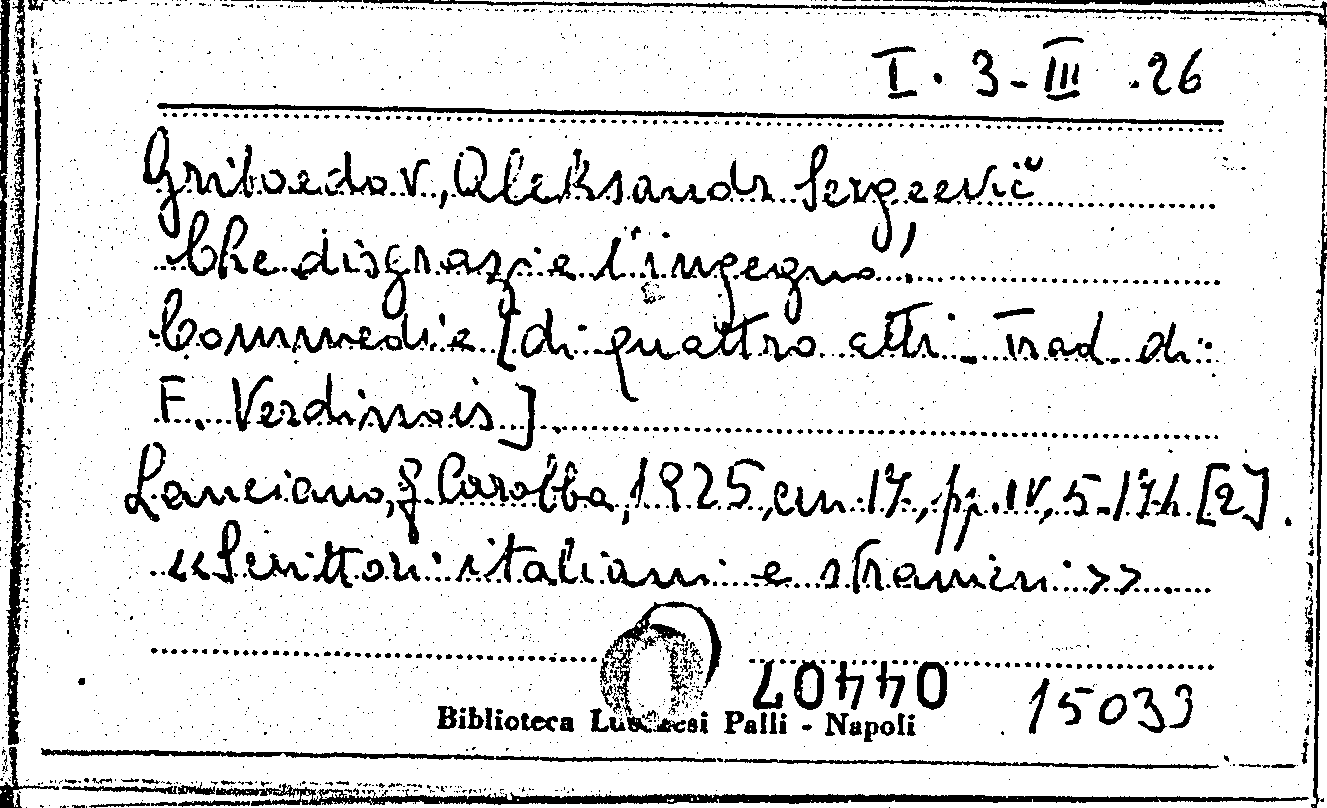 I. 3-III.26
Griboedov, Aleksandr Sergeevič
Che disgrazia l'ingegno!
Commedia [di quattro atti. Trad. di
F. Verdinois].
Lanciano, G. Carabba, 1925, cm 17, pp. IV, 5-171 [2].
«Scrittori italiani e stranieri»
04407 15033
Biblioteca Lucchesi Palli - Napoli